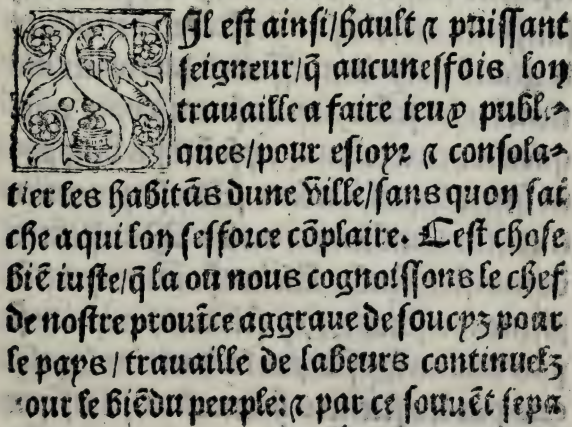 SIl est ainsi/hault ⁊ puissant
seigneur/q̃ aucunesfois lon
trauaille a faire ieux publi⸗
ques/pour esioyr ⁊ consola⸗
tier les habitãs dune ville/sans quon sai
che a qui lon sefforce cõplaire. Cest chose
biẽ iuste/q̃ la ou nous cognoissons le chef
de nostre prouĩce aggraue de soucyz pour
le pays/trauaille de labeurs continuelz
pour le biẽ du peuple: ⁊ par ce souuẽt sepa